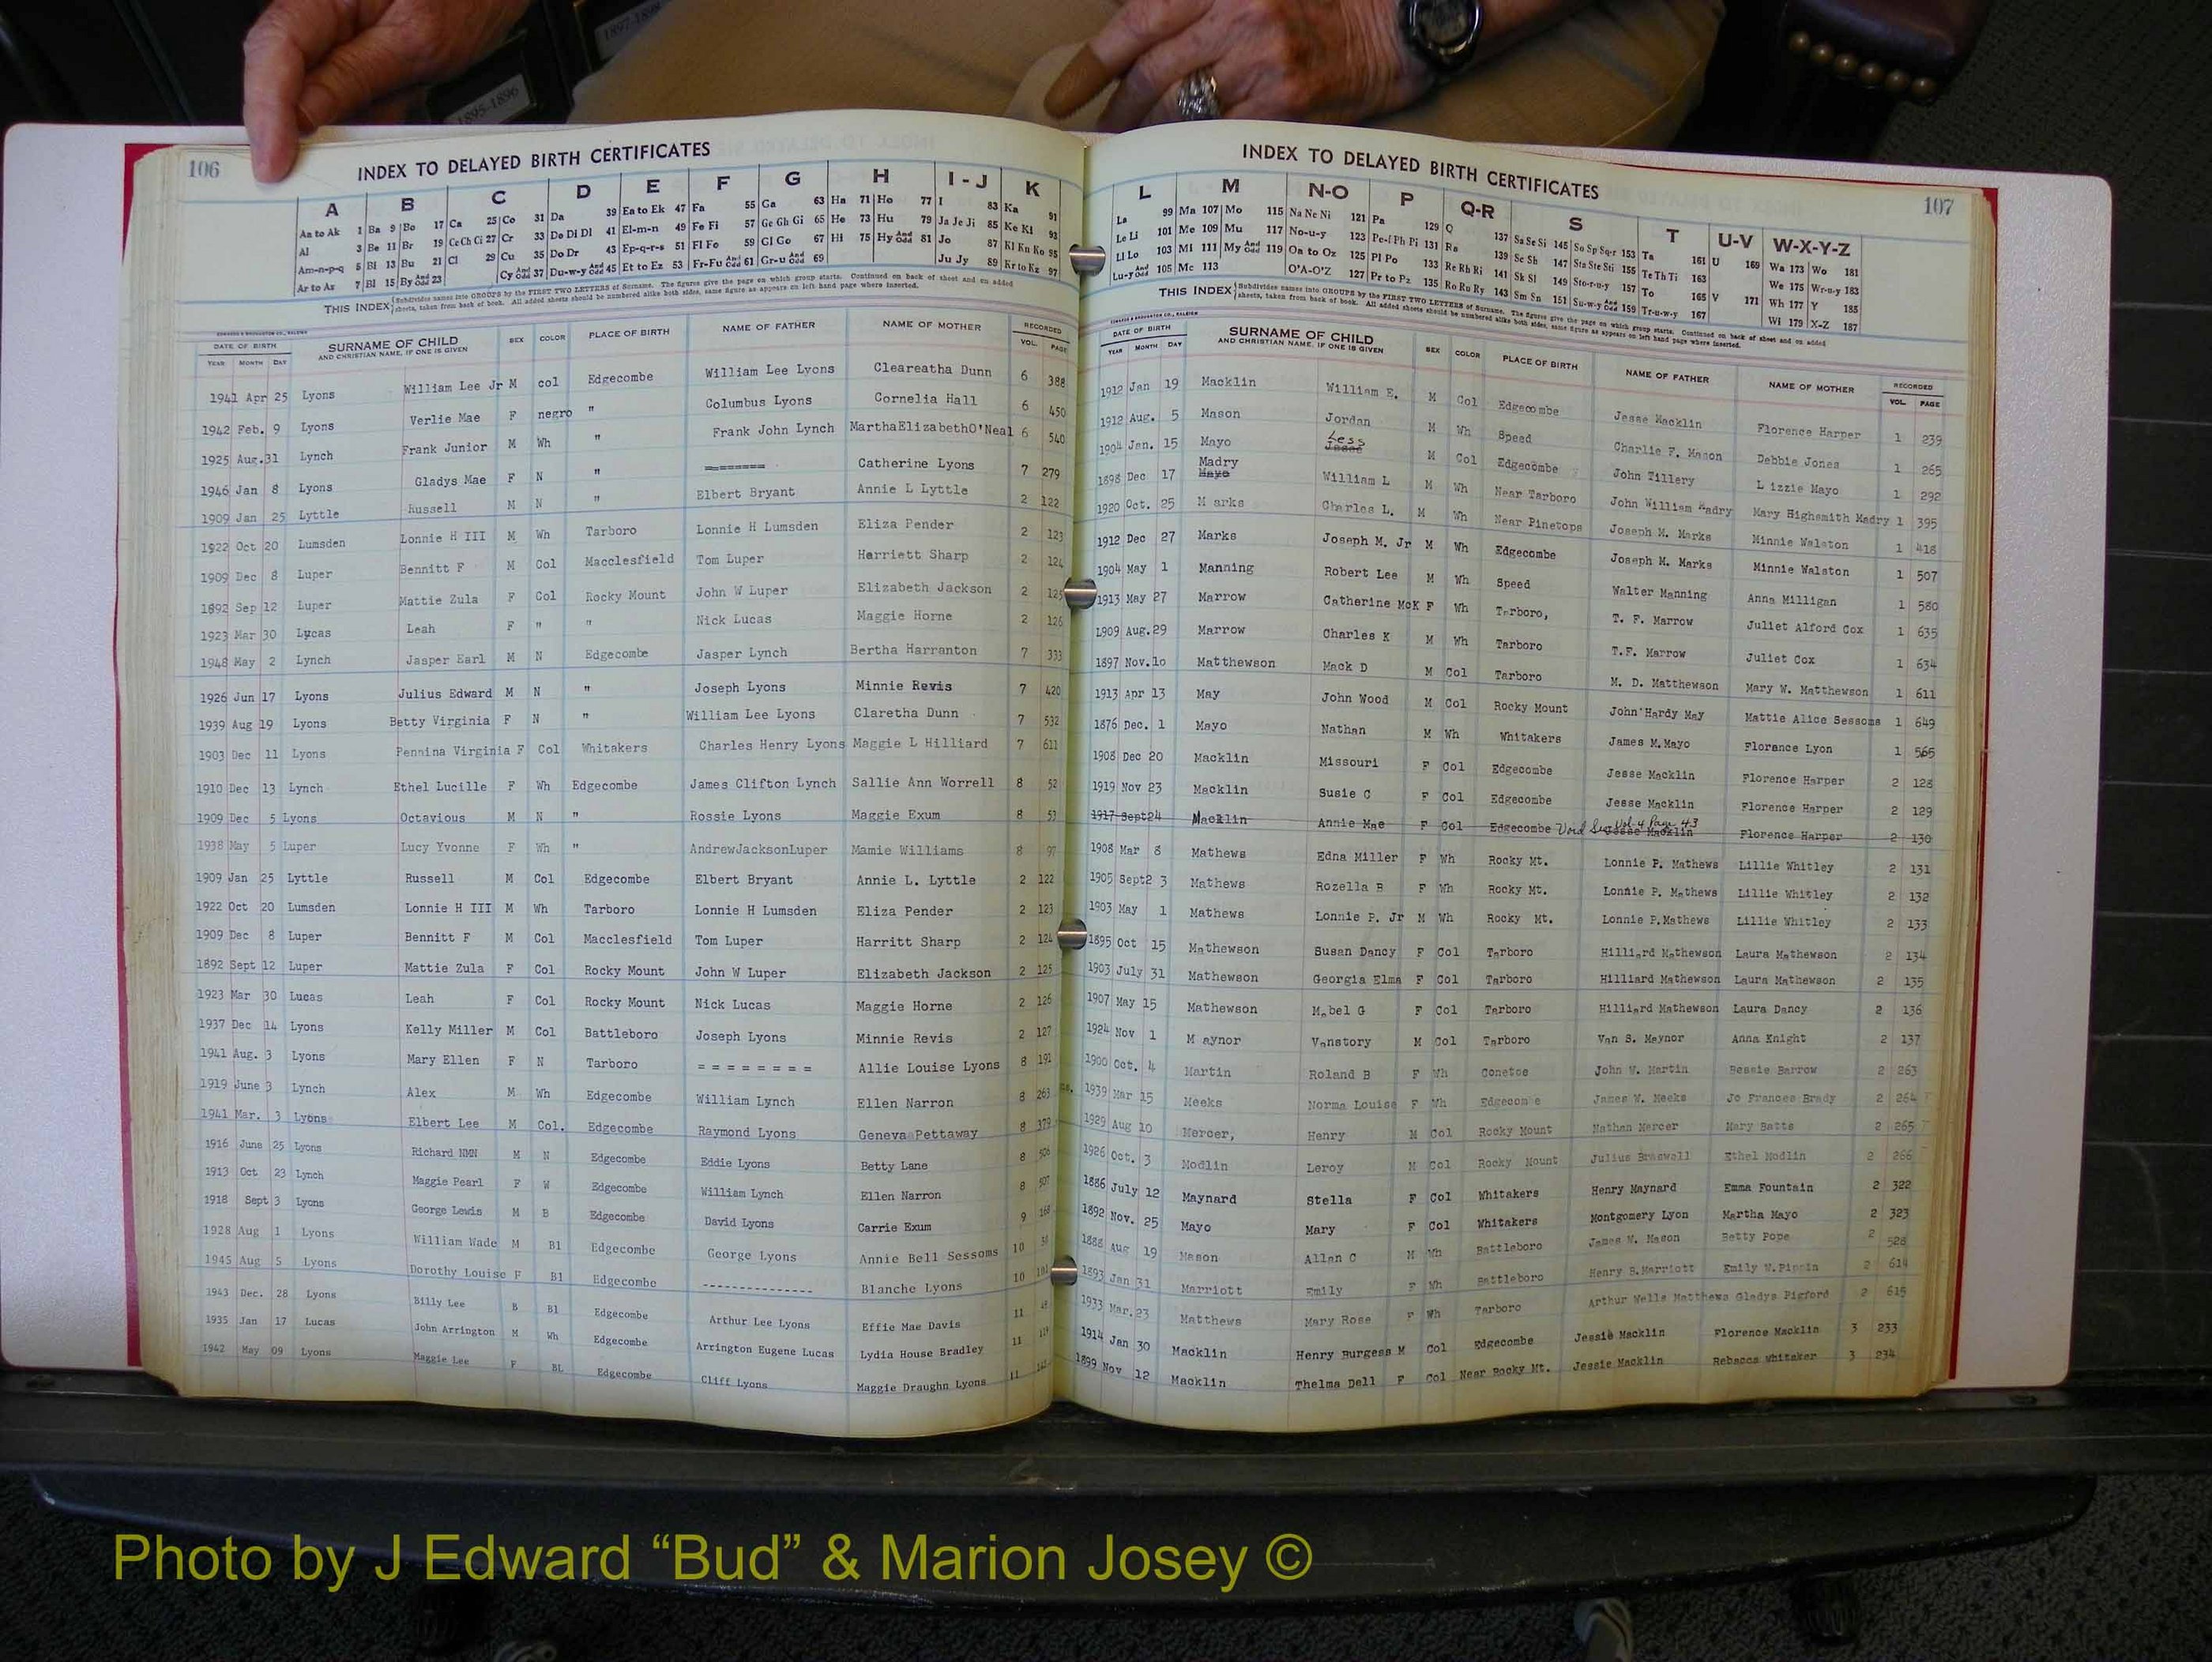 1897-1898
1895-1896
106
INDEX TO DELAYED BIRTH CERTIFICATES
A B C D E F G H I - J K
Aa to Ak 1 Ba 9 Bo 17 Ca 25 Co 31 Da 39 Ea to Ek 47 Fa 55 Ga 63 Ha 71 Ho 77 I 83 Ka 91
Al 3 Be 11 Br 19 Ce Ch Ci 27 Cr 33 De Di Dl 41 El-m-n 49 Fe Fi 57 Ge Gh Gi 65 He 73 Hu 79 Ja Je Ji 85 Ke Ki 93
Am-n-p-q 5 Bi 13 Bu 21 Cl 29 Cu 35 Do Dr 43 Ep-q-r-s 51 Fl Fo 59 Gl Go 67 Hi 75 Hy And Odd 81 Jo 87 Kl Kn Ko 95
Ar to Az 7 Bl 15 By And Odd 23 Cy And Odd 37 Du-w-y And Odd 45 Et to Ez 53 Fr-Fu And Odd 61 Gr-u And Odd 69 Ju Jy 89 Kr to Kz 97
THIS INDEX Subdivides names into GROUPS by the FIRST TWO LETTERS of Surname. The figures give the page on which group starts. Continued on back of sheet and on added
sheets, taken from back of book. All added sheets should be numbered alike both sides, same figure as appears on left hand page where inserted.
DATE OF BIRTH SURNAME OF CHILD SEX COLOR PLACE OF BIRTH NAME OF FATHER NAME OF MOTHER RECORDED
YEAR MONTH DAY AND CHRISTIAN NAME, IF ONE IS GIVEN VOL. PAGE
1941 Apr 25 Lyons William Lee Jr M col Edgecombe William Lee Lyons Cleareatha Dunn 6 388
1942 Feb. 9 Lyons Verlie Mae F negro " Columbus Lyons Cornelia Hall 6 450
1925 Aug.31 Lynch Frank Junior M Wh " Frank John Lynch MarthaElizabethO'Neal 6 540
1946 Jan 8 Lyons Gladys Mae F N " ======== Catherine Lyons 7 279
1909 Jan 25 Lyttle Russell M N " Elbert Bryant Annie L Lyttle 2 122
1922 Oct 20 Lumsden Lonnie H III M Wh Tarboro Lonnie H Lumsden Eliza Pender 2 123
1909 Dec 8 Luper Bennitt F M Col Macclesfield Tom Luper Harriett Sharp 2 124
1892 Sep 12 Luper Mattie Zula F Col Rocky Mount John W Luper Elizabeth Jackson 2 125
1923 Mar 30 Lucas Leah F " " Nick Lucas Maggie Horne 2 126
1948 May 2 Lynch Jasper Earl M N Edgecombe Jasper Lynch Bertha Harranton 7 333
1926 Jun 17 Lyons Julius Edward M N " Joseph Lyons Minnie Revis 7 420
1939 Aug 19 Lyons Betty Virginia F N " William Lee Lyons Claretha Dunn 7 532
1903 Dec 11 Lyons Pennina Virginia F Col Whitakers Charles Henry Lyons Maggie L Hilliard 7 611
1910 Dec 13 Lynch Ethel Lucille F Wh Edgecombe James Clifton Lynch Sallie Ann Worrell 8 52
1909 Dec 5 Lyons Octavious M N " Rossie Lyons Maggie Exum 8 53
1938 May 5 Luper Lucy Yvonne F Wh " AndrewJacksonLuper Mamie Williams 8 97
1909 Jan 25 Lyttle Russell M Col Edgecombe Elbert Bryant Annie L. Lyttle 2 122
1922 Oct 20 Lumsden Lonnie H III M Wh Tarboro Lonnie H Lumsden Eliza Pender 2 123
1909 Dec 8 Luper Bennitt F M Col Macclesfield Tom Luper Harritt Sharp 2 124
1892 Sept 12 Luper Mattie Zula F Col Rocky Mount John W Luper Elizabeth Jackson 2 125
1923 Mar 30 Lucas Leah F Col Rocky Mount Nick Lucas Maggie Horne 2 126
1937 Dec 14 Lyons Kelly Miller M Col Battleboro Joseph Lyons Minnie Revis 2 127
1941 Aug. 3 Lyons Mary Ellen F N Tarboro = = = = = = = = Allie Louise Lyons 8 191
1919 June 3 Lynch Alex M Wh Edgecombe William Lynch Ellen Narron 8 263
1941 Mar. 3 Lyons Elbert Lee M Col. Edgecombe Raymond Lyons Geneva Pettaway 8 379
1916 June 25 Lyons Richard NMN M N Edgecombe Eddie Lyons Betty Lane 8 506
1913 Oct 23 Lynch Maggie Pearl F W Edgecombe William Lynch Ellen Narron 8 507
1918 Sept 3 Lyons George Lewis M B Edgecombe David Lyons Carrie Exum 9 168
1928 Aug 1 Lyons William Wade M Bl Edgecombe George Lyons Annie Bell Sessoms 10
1945 Aug 5 Lyons Dorothy Louise F Bl Edgecombe -------------- Blanche Lyons 10
1943 Dec. 28 Lyons Billy Lee B Bl Edgecombe Arthur Lee Lyons Effie Mae Davis 11
1935 Jan 17 Lucas John Arrington M Wh Edgecombe Arrington Eugene Lucas Lydia House Bradley 11
1942 May 09 Lyons Maggie Lee F BL Edgecombe Cliff Lyons Maggie Draughn Lyons 11
INDEX TO DELAYED BIRTH CERTIFICATES
107
L M N-O P Q-R S T U-V W-X-Y-Z
La 99 Ma 107 Mo 115 Na Ne Ni 121 Pa 129 Q 137 Sa Se Si 145 So Sp Sq-r 153 Ta 161 U 169 Wa 173 Wo 181
Le Li 101 Me 109 Mu 117 No-u-y 123 Pe-f Ph Pi 131 Ra 139 Sc Sh 147 Sta Ste Sti 155 Te Th Ti 163 We 175 Wr-u-y 183
Ll Lo 103 Mi 111 My And Odd 119 Oa to Oz 125 Pl Po 133 Re Rh Ri 141 Sk Sl 149 Sto-r-u-y 157 To 165 V 171 Wh 177 Y 185
Lu-y And Odd 105 Mc 113 O'A-O'Z 127 Pr to Pz 135 Ro Ru Ry 143 Sm Sn 151 Su-w-y And Odd 159 Tr-u-w-y 167 Wi 179 X-Z 187
THIS INDEX Subdivides names into GROUPS by the FIRST TWO LETTERS of Surname. The figures give the page on which group starts. Continued on back of sheet and on added
sheets, taken from back of book. All added sheets should be numbered alike both sides, same figure as appears on left hand page where inserted.
DATE OF BIRTH SURNAME OF CHILD SEX COLOR PLACE OF BIRTH NAME OF FATHER NAME OF MOTHER RECORDED
YEAR MONTH DAY AND CHRISTIAN NAME, IF ONE IS GIVEN VOL. PAGE
1912 Jan 19 Macklin William E. M Col Edgecombe Jesse Macklin Florence Harper 1 239
1912 Aug. 5 Mason Jordan M Wh Speed Charlie F. Mason Debbie Jones 1 265
1904 Jan. 15 Mayo Less Jesse M Col Edgecombe John Tillery Lizzie Mayo 1 292
1898 Dec 17 Madry Mayo William L M Wh Near Tarboro John William Madry Mary Highsmith Madry 1 395
1920 Oct. 25 M arks Charles L. M Wh Near Pinetops Joseph M. Marks Minnie Walston 1 418
1912 Dec 27 Marks Joseph M. Jr M Wh Edgecombe Joseph M. Marks Minnie Walston 1 507
1904 May 1 Manning Robert Lee M Wh Speed Walter Manning Anna Milligan 1 580
1913 May 27 Marrow Catherine McK F Wh Tarboro, T. F. Marrow Juliet Alford Cox 1 635
1909 Aug.29 Marrow Charles K M Wh Tarboro T.F. Marrow Juliet Cox 1 634
1897 Nov.10 Matthewson Mack D M Col Tarboro M. D. Matthewson Mary W. Matthewson 1 611
1913 Apr 13 May John Wood M Col Rocky Mount John Hardy May Mattie Alice Sessoms 1 649
1876 Dec. 1 Mayo Nathan M Wh Whitakers James M.Mayo Florence Lyon 1 565
1908 Dec 20 Macklin Missouri F Col Edgecombe Jesse Macklin Florence Harper 2 128
1919 Nov 23 Macklin Susie C F Col Edgecombe Jesse Macklin Florence Harper 2 129
1917 Sept24 Macklin Annie Mae F Col Edgecombe Void See Vol-4 Page 43 Jesse Macklin Florence Harper 2 130
1908 Mar 8 Mathews Edna Miller F Wh Rocky Mt. Lonnie P. Mathews Lillie Whitley 2 131
1905 Sept2 3 Mathews Rozella B F Wh Rocky Mt. Lonnie P. Mathews Lillie Whitley 2 132
1903 May 1 Mathews Lonnie P. Jr M Wh Rocky Mt. Lonnie P.Mathews Lillie Whitley 2 133
1895 Oct 15 Mathewson Susan Dancy F Col Tarboro Hilliard Mathewson Laura Mathewson 2 134
1903 July 31 Mathewson Georgia Elma F Col Tarboro Hilliard Mathewson Laura Mathewson 2 135
1907 May 15 Mathewson Mabel G F Col Tarboro Hilliard Mathewson Laura Dancy 2 136
1924 Nov 1 M aynor Vanstory M Col Tarboro Van S. Maynor Anna Knight 2 137
1900 Oct. 4 Martin Roland B F Wh Conetoe John W. Martin Bessie Barrow 2 263
1939 Mar 15 Meeks Norma Louise F Wh Edgecom e James W. Meeks Jo Frances Brady 2 264
1929 Aug 10 Mercer, Henry M Col Rocky Mount Nathan Mercer Mary Batts 2 265
1926 Oct. 3 Modlin Leroy M Col Rocky Mount Julius Braswell Ethel Modlin 2 266
1886 July 12 Maynard Stella F Col Whitakers Henry Maynard Emma Fountain 2 322
1892 Nov. 25 Mayo Mary F Col Whitakers Montgomery Lyon Martha Mayo 2 323
1888 Aug 19 Mason Allen C M Wh Battleboro James W. Mason Betty Pope 2 528
1893 Jan 31 Marriott Emily F Wh Battleboro Henry B.Marriott Emily W.Pippin 2 614
1933 Mar.23 Matthews Mary Rose F Wh Tarboro Arthur Wells Matthews Gladys Pigford 2 615
1914 Jan 30 Macklin Henry Burgess M Col Edgecombe Jessie Macklin Florence Macklin 3 233
1899 Nov 12 Macklin Thelma Dell F Col Near Rocky Mt. Jessie Macklin Rebacca Whitaker 3 234
Photo by J Edward “Bud” & Marion Josey ©